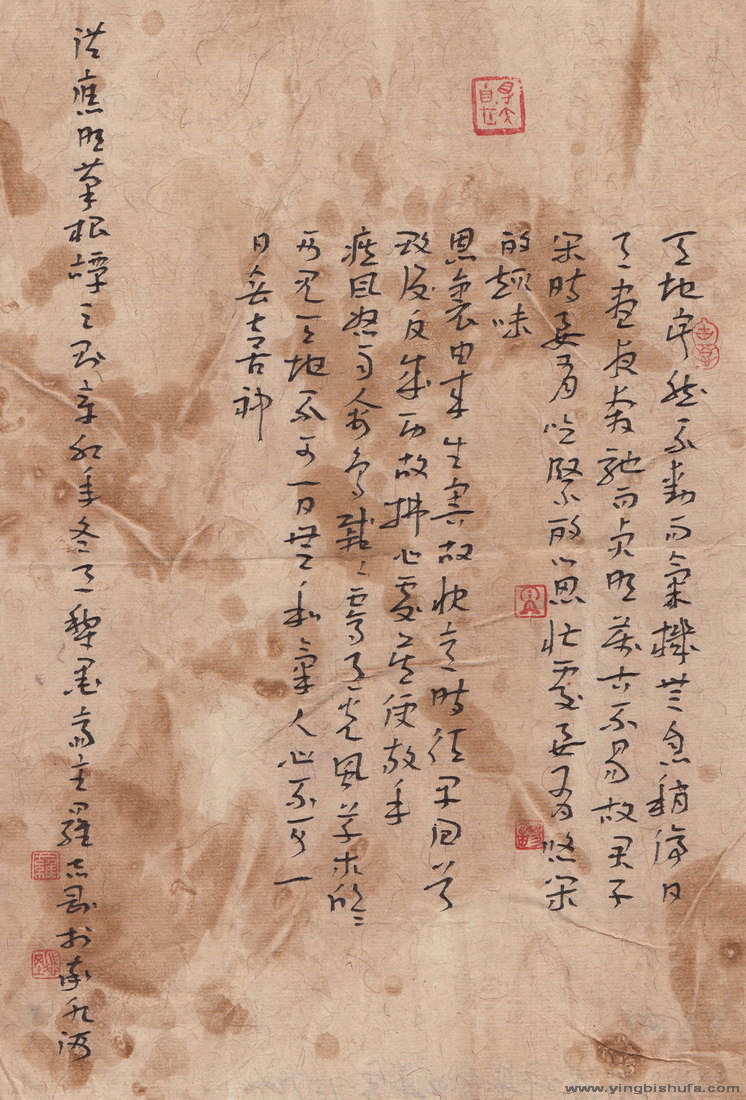 天地寂然不動而氣機無息稍停日
月晝夜奔馳而貞明萬古不易故君子
閑時要有吃緊的心思忙處要有悠閑
的趣味
恩裏由來生害故快意時須早回首
敗後反成功故拂心處莫便放手
疾風怒雨禽鳥戚〻霽日光風草木欣〻
可見天地不可一日無和氣人心不可一
日無喜神
洪應明菜根譚之句辛卯年冬月犁墨齋主羅
www.yingbishufa.com